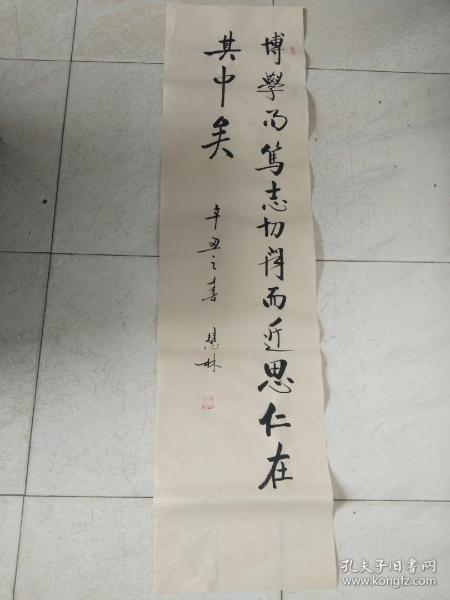 博學而篤志切問而近思仁在
其中矣
辛丑之春 慧林
孔夫子旧书网
www.kongfz.com